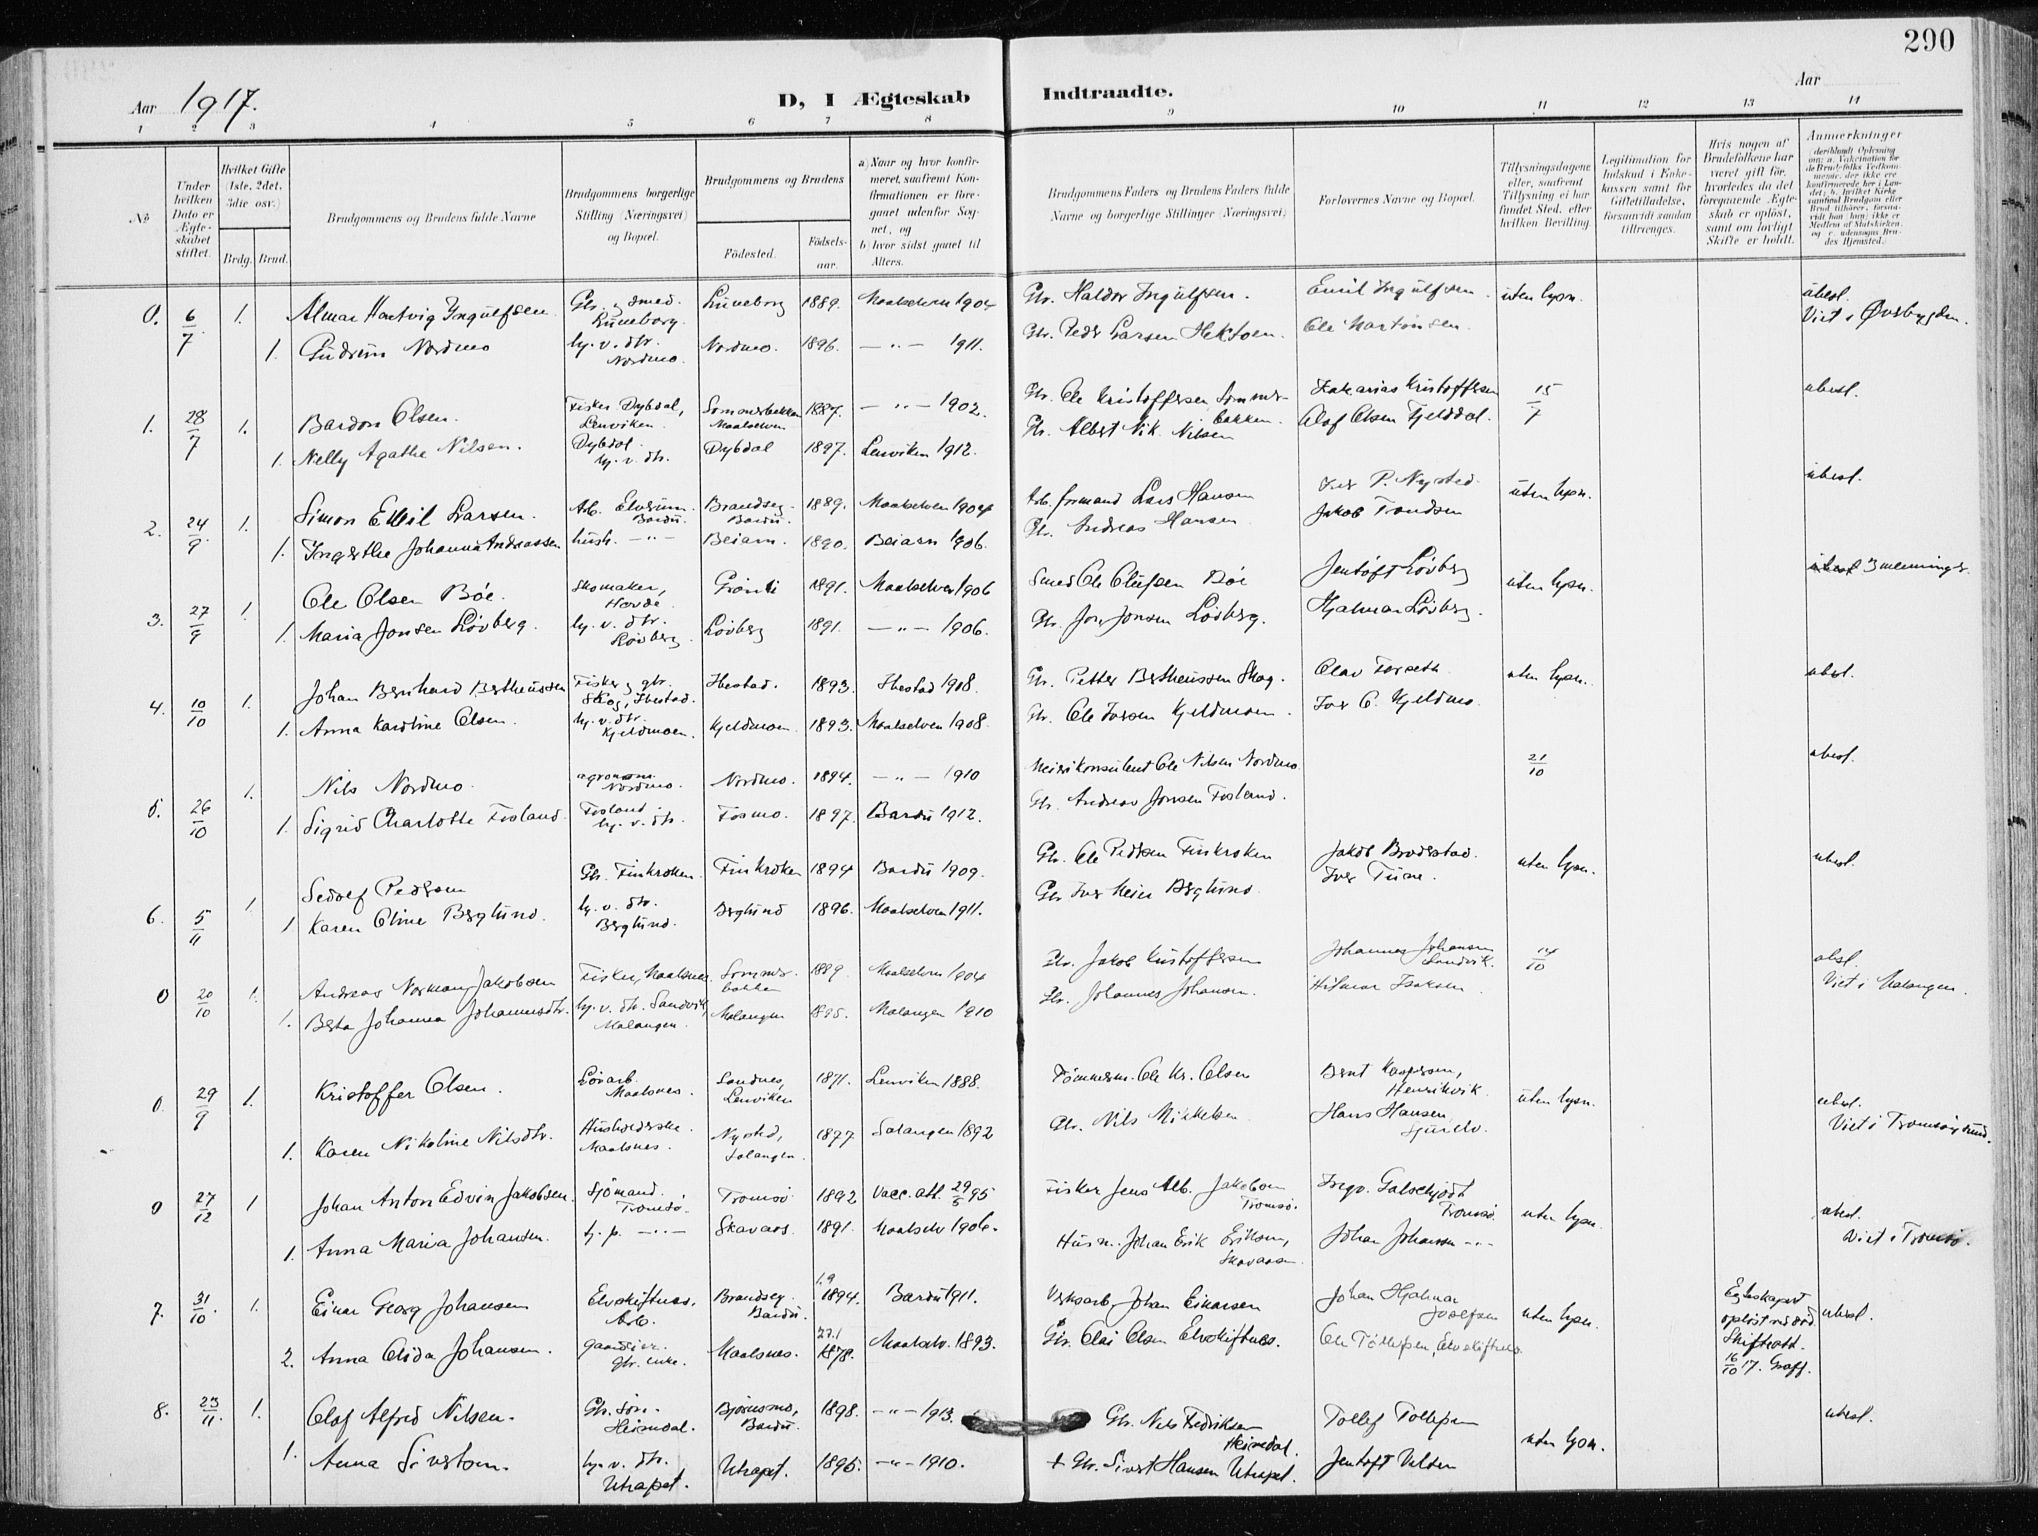 290
Aar 1917.
D, I Ægteskab Indtraadte.
Aar
1 2 3 4 5 6 7 8 9 10 11 12 13 14
No
Under hvilken Dato er Ægteskabet stiftet.
Hvilket Gifte (1ste, 2det, 3die osv.)
Brdg. Brud.
Brudgommens og Brudens fulde Navne
Brudgommens borgerlige Stilling (Næringsvei) og Bopæl.
Brudgommens og Brudens
Fødested.
Fødselsaar.
a) Naar og hvor konfirmeret, saafremt Konfirmationen er foregaaet udenfor Sognet, og
b) hvor sidst gaaet til Alters.
Brudgommens Faders og Brudens Faders fulde Navne og borgerlige Stillinger (Næringsvei)
Forlovernes Navne og Bopæl.
Tillysningsdagene eller, saafremt Tillysning ei har fundet Sted, efter hvilken Bevilling.
Legitimation for Indskud i Enkekassen samt for Giftetilladelse, forsaavidt saadan tiltrænges.
Hvis nogen af Brudefolkene har været gift før, hvorledes da det foregaaende Ægteskab er opløst, samt om lovligt Skifte er holdt.
Anmerkninger
0. 6/7 1. Almar Hartvig Ingulfsen Gbr. smed. Luneborg. Luneborg 1889. Maalselven 1904 Gbr. Haldor Ingulfsen. Emil Ingulfsen uten lysn. ubesl. Viet i Øverbygden.
1. Gudrun Nordmo hj. v. dtr. Nordmo. Nordmo. 1896. — " — 1911. Gbr. Peder Larsen Hektoen. Ole Martinsen.
1. 28/7 1. Bardon Olsen. Fisker Dybdal, Lenviken. Sommerbakken Maalselven 1887. — " — 1902. Gbr. Ole Kristoffersen Sommerbakken. Zakarias Kristoffersen 15/7 ubesl.
1. Nelly Agathe Nilsen. Dybdal. hj. v. dtr. Dybdal 1897. Lenviken 1912. Gbr. Albert Nik. Nilsen Olaf Olsen Fjelddal.
2. 24/9 1. Simon Emil Larsen. Arb. Elverum Bardu. Brandseg Bardu. 1889. Maalselven 1904 Arb. formand Lars Hansen Iver P. Nysted uten lysn. ubesl.
1. Ingerthe Johanna Andreassen hush. — " — Beiarn. 1890. Beiarn 1906. Gbr. Andreas Hansen Jakob Trondsen
3. 27/9 1. Ole Olsen Bøe. Skomaker, Hovde. 1891. Maalselven 1906 Smed Ole Olufsen Bøe Jentoft Løvberg uten lysn.
1. Maria Jonsen Løvberg. hj. v. dtr. Løvberg. Løvberg 1891. — " — 1906. Gbr. Jon Jonsen Løvberg. Hjalmar Løvberg.
4. 10/10 1. Johan Bernhard Bertheussen Fisker, gbr. Skog, Ibestad. Ibestad. 1893. Ibestad 1908. Gbr. Petter Bertheussen Skog. Olav Forseth uten lysn. ubesl.
1. Anna Karoline Olsen. hj. v. dtr. Kjeldmoen. Kjeldmoen 1893. Maalselven 1908. Gbr. Ole Iversen Kjeldmoen. Iver O. Kjeldmo.
5. 26/10 1. Nils Nordmo. agronom. Nordmo. Nordmo. 1894. — " — 1910 Meierikonsulent Ole Nilsen Nordmo 21/10 ubesl.
1. Sigrid Charlotte Fosland. Fosland. hj. v. dtr. Fosmo. 1897. Bardu 1912. Gbr. Andreas Jonsen Fosland.
6. 5/11 1. Sedolf Pedersen Gbr. Finkroken. Finkroken 1894 Bardu 1909. Gbr. Ole Pedersen Finkroken Jakob Broderstad. uten lysn. ubesl.
1. Karen Oline Berglund. hj. v. dtr. Berglund. Berglund 1896. Maalselven 1911. Gbr. Iver Meier Berglund. Iver Tune.
0 20/10 1. Andreas Norman Jakobsen Fisker, Maalsnes. Sommerbakken 1889. Maalselven 1904 Gbr. Jakob Kristoffersen Johannes Johansen Sandvik. 14/10 ubesl. Viet i Malangen.
1. Berta Johanna Johannesdtr. hj. v. dtr. Sandvik, Malangen. Malangen 1895. Malangen 1910 Gbr. Johannes Johansen. Hilmar Isaksen
0. 29/9 1. Kristoffer Olsen. Løsarb. Maalsnes. Sandnes, Lenviken 1871. Lenviken 1888. Tømmerm. Ole Kr. Olsen Bernt Kaspersen, Henrikvik. uten lysn. ubesl. Viet i Tromsøysund.
1. Karen Nikoline Nilsdtr. Husholderske. Maalsnes. Nysted, Salangen. 1877 Salangen 1892 Gbr. Nils Mikkelsen Hans Hansen
0 27/12 1 Johan Anton Edvin Jakobsen Sjømand. Tromsø. Tromsø 1892 Vacc. att. 29/5 95 Fisker Jens Alb. Jakobsen Tromsø. Ingv. Galschjødt Tromsø uten lysn. ubesl. Viet i Tromsø.
1. Anna Maria Johansen. tj. p. — " — Skavaas. 1891. Maalselv 1906. Husm. Johan Erik Eriksen, Skavaasen. Johan Johansen — " —
7. 31/10 1. Einar Georg Johansen Elvskiftnes, Arb. Brandseg. Bardu. 1.9 1894. Bardu 1911. Veksarb. Johan Einarsen Johan Hjalmar Josefsen uten lysn. Egteskapet opløst ved død Skifteatt. 16/10 17. Graff. ubesl.
2. Anna Olida Johansen. gaardeier. Gbr. enke. Maalsnes. 27.1 1878. Maalselv. 1893. Gbr. Olai Olsen Elvskiftnes. Ole Tollefsen, Elvskiftnes
8. 23/11. 1. Olaf Alfred Nilsen. Gbr. søn. Heimdal. Bjørnsmo, Bardu. 1898. — " — 1913. Gbr. Nils Fredriksen Heimdal. Tollef Tollefsen uten lysn. ubesl.
1. Anna Sivertsen. hj. v. dtr. Utrapet. Utrapet. 1895. — " — 1910. + Gbr. Sivert Hansen Utrapet. Jentoft Valsen